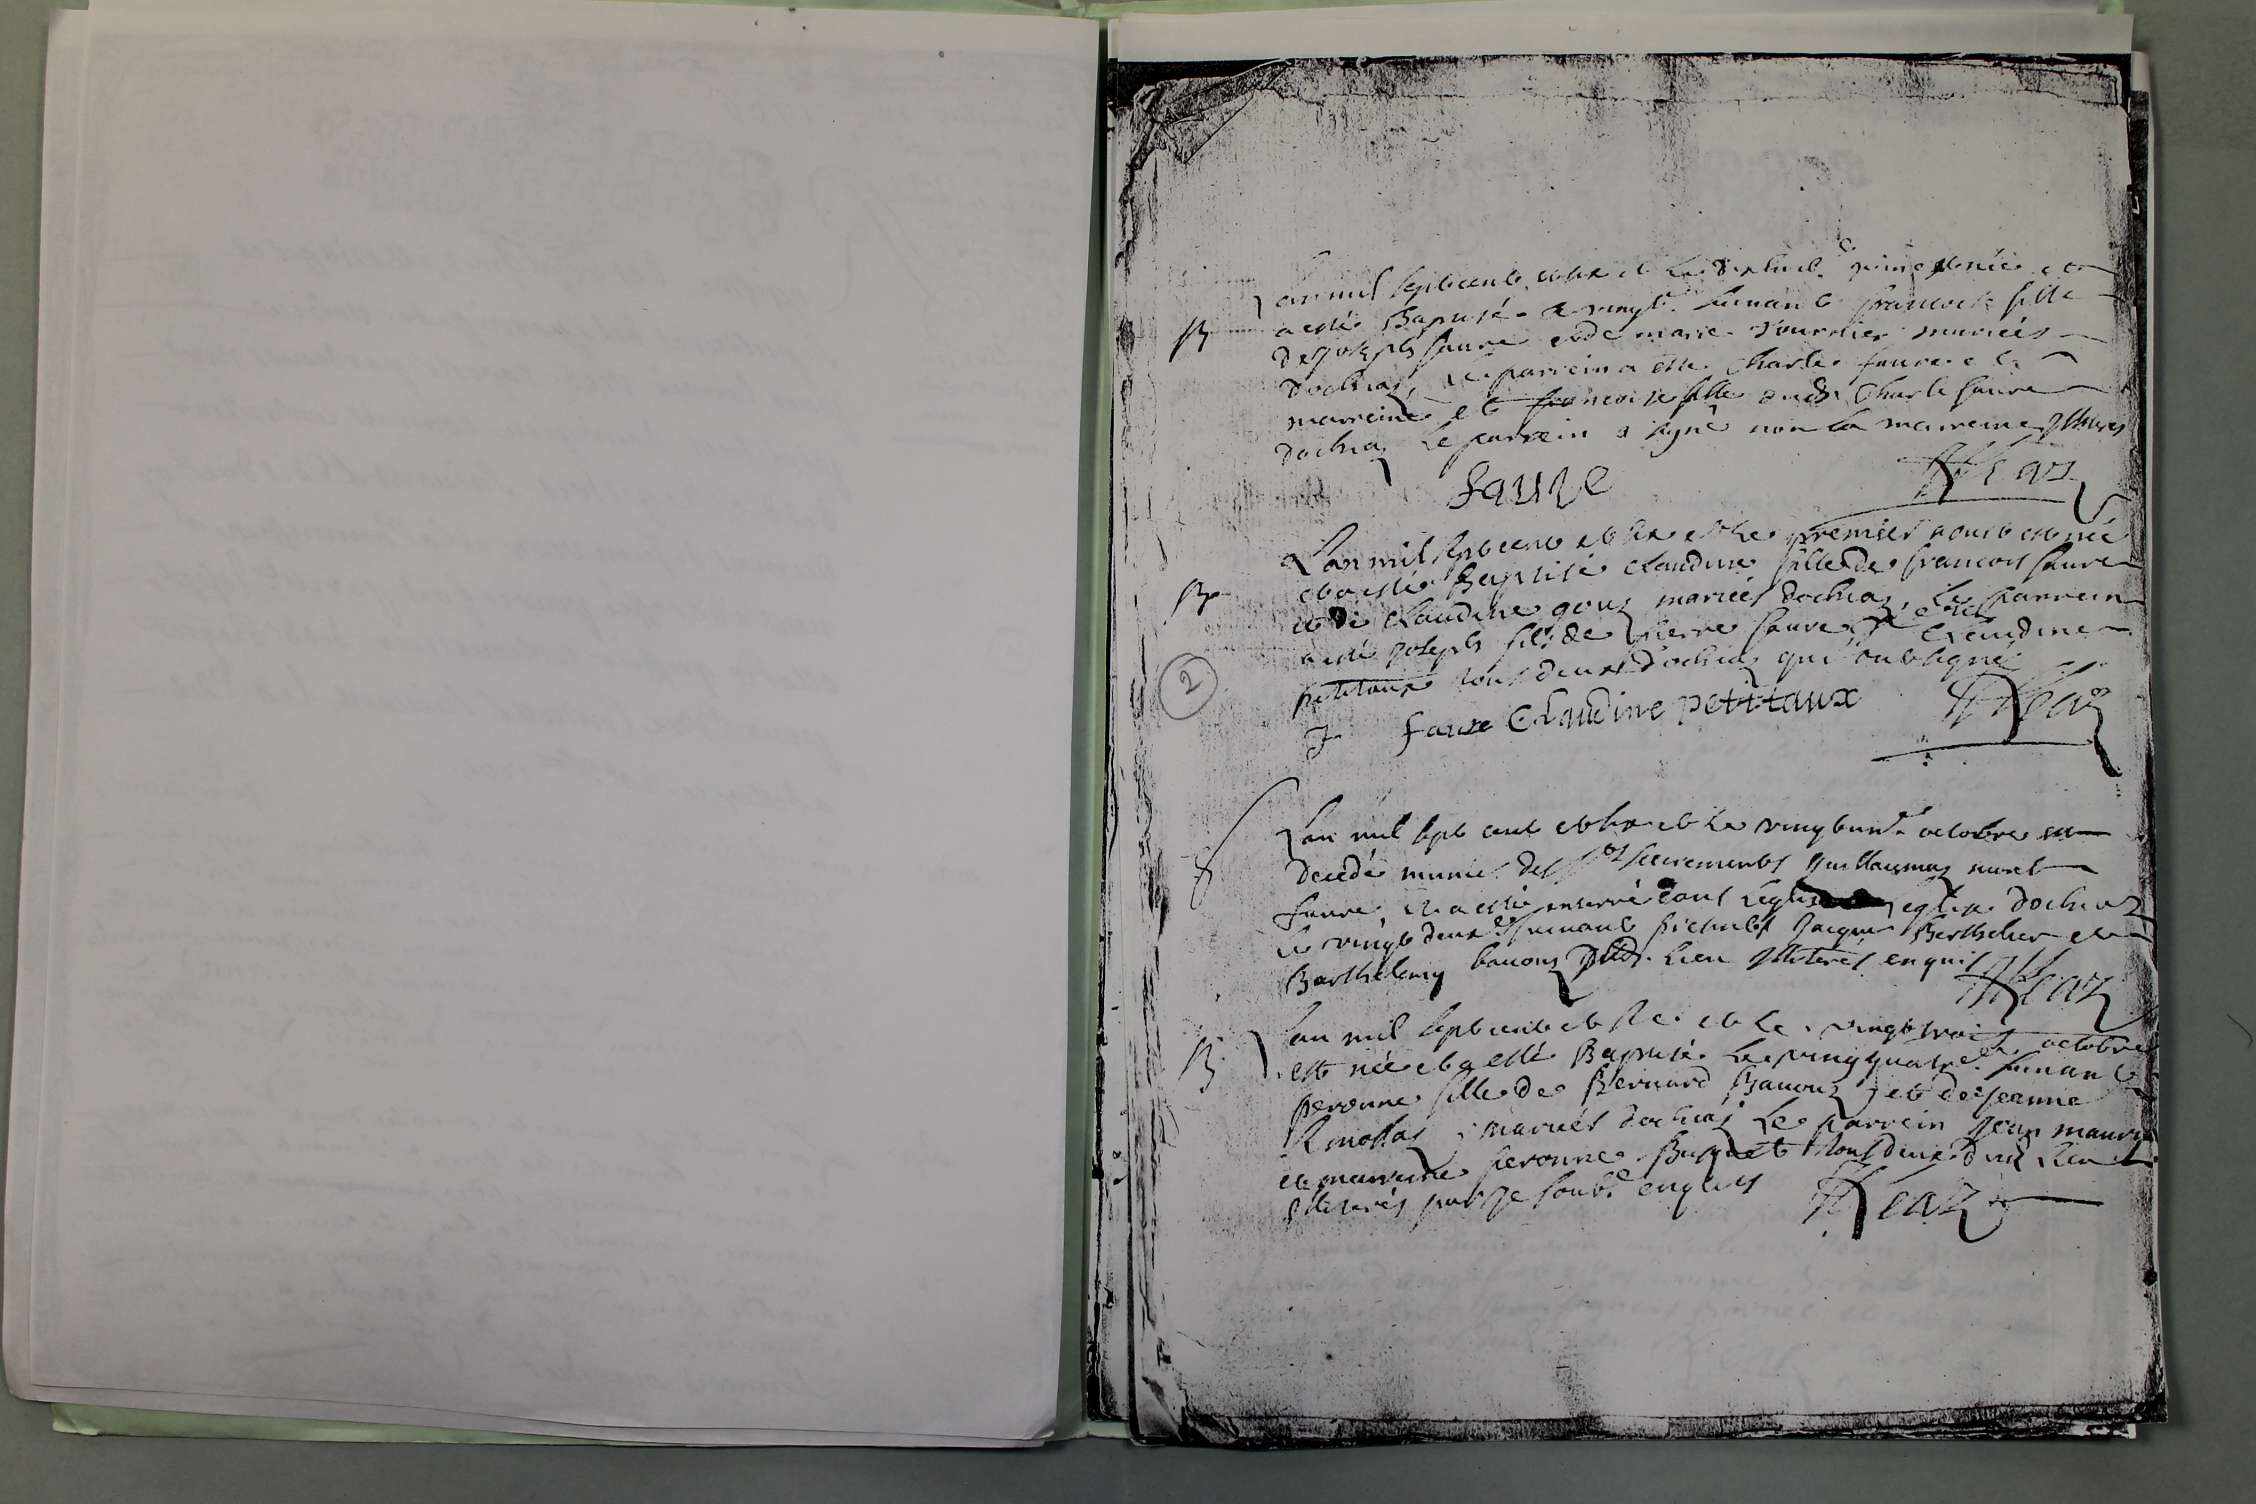 an mil sept cent et six et le dixhuit.e juin est née et
B
a esté Baptisé le vingt suivant francoise fille
de Joseph faure et de marie fournier mariés
dochiaz, le parrein a esté Charle faure et la
marreine et francoise fille dud. Charle faure
dochiaz le parrein a signé non la marreine illiteres
faure
L'an mil sept cent et six et le premier aoust est née
B
et a esté Baptisé claudine fille de francois faure
et de claudine gouz mariés dochiaz, le parrein
a esté Joseph fils de pierre faure et claudine
2
petitaux tous deux dochiaz qui ont signé
J faure Claudine petittaux
L'an mil sept cent et six et le vingt un.e octobre
decedé munie des Sts sacrements
faure, et a esté enterré dans L'eglise eglise dochiaz
le vingt deux.e suivant Jacque Berthelier et
Barthelemy bauouz dud. lieu illiterés enquis
L'an mil sept cent et six et le vingt trois octobre
B
est née et a esté Baptisé le vingt quatre suivant
peronne fille de Bernard Bauouz et de Jeanne
mariés dochiaz le parrein Jean
et marreine peronne tous deux dud. lieu
illiterés par Je soub.é enquis